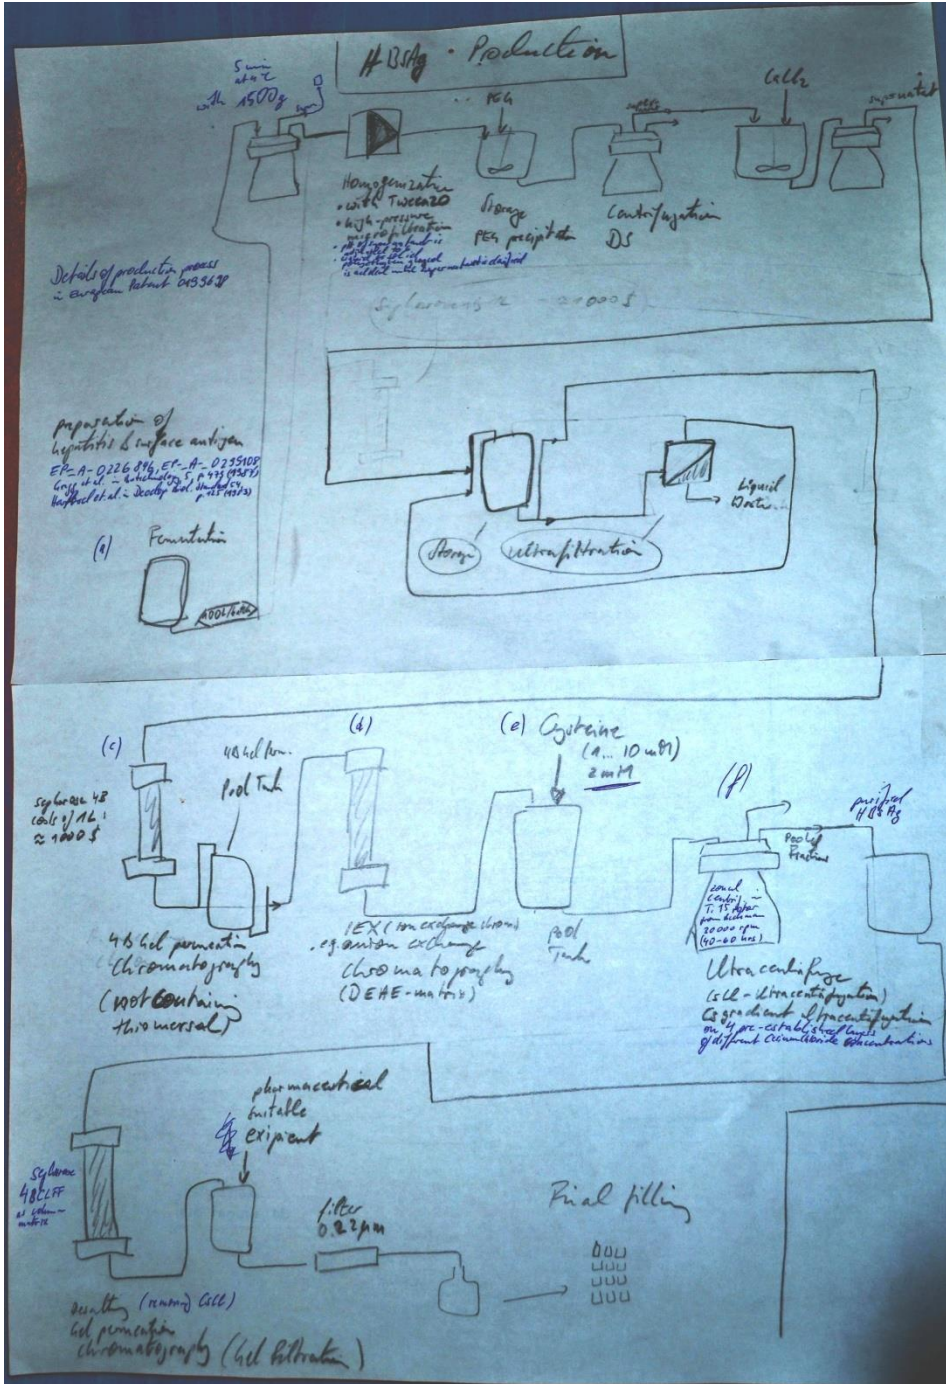 HBsAg - Production
5 min
at 4°C
with 1500g
PEG
CaCl2
supernatant
Homogenization
• with Tween20
• high-pressure
microfiltration
Storage
PEG precipitation
Centrifugation
DS
Details of production process
in European Patent 0199698
preparation of
hepatitis B surface antigen
EP-A-0226846, EP-A-0299108
(a) Fermentation
Storage
ultrafiltration
Liquid
Waste
(c)
4B Gel Perm.
Pool Tank
sepharose 4B
costs of 1L:
≈ 1000 $
4B Gel permeation
chromatography
(not containing
thiomersal)
(d)
IEX (ion exchange chrom)
e.g. anion exchange
Chromatography
(DEAE-matrix)
(e) Cysteine
(1... 10 mM)
2 mM
pool
Tank
(f)
Pool of
Fractions
purified
HBsAg
20000 rpm
(40-60 hrs)
Ultracentrifuge
(CsCl-Ultracentrifugation)
Cs gradient ultracentrifugation
on 4 pre-established layers
of different concentrations
sepharose
4BCLFF
as column-
matrix
pharmaceutical
suitable
exipient
filter
0.22µm
Final filling
desalting (removing CsCl)
Gel permeation
chromatography (Gel filtration)